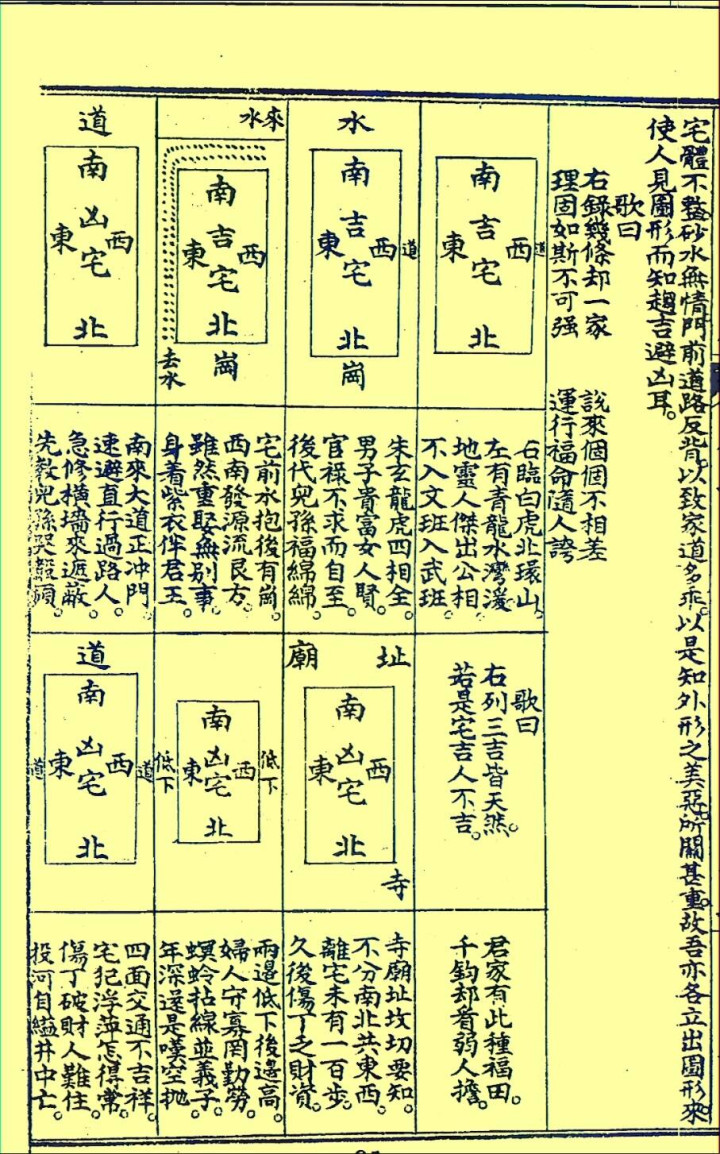 宅體不整。砂水無情。門前道路反背。以致家道多乖。以是知外形之美惡。所關甚重。故吾亦各立出圖形來。
使人見圖形而知趨吉避凶耳。
歌曰
右錄幾條却一家
說來個個不相差
理固如斯不可强
運行福命隨人誇
南
東 吉宅 西
北
道
右臨白虎北環山。
左有青龍水灣湲
地靈人傑出公相
不入文班入武班。
水
南
東 吉宅 西
北
道
崗
朱玄龍虎四相全
男子貴富女人賢。
官祿不求而自至。
後代兒孫福綿綿。
來水
南
東 吉宅 西
北
崗
去水
宅前水抱後有崗。
西南發源流艮方。
雖然重娶無別事
身着紫衣伴君王。
道
南
東 凶宅 西
北
南來大道正冲門
速避直行過路人。
急修橫墻來遮蔽。
先教兒孫哭
歌曰
右列三吉皆天然。
若是宅吉人不吉。
君家有此種福田。
千鈞却看弱人擔。
廟 址
南
東 凶宅 西
北
寺
寺廟址坟切要知。
不分南北共東西。
離宅未有一百步。
久後傷丁乏財資。
南
東 凶宅 西
北
低下
低下
兩邊低下後邊高
婦人守寡罔勤勞。
螟蛉拈線並義子。
年深還是嘆空拋
道
南
東 凶宅 西
北
道
道
四面交通不吉祥。
宅犯浮萍怎得常。
傷丁破財人難住。
投河自縊井中亡。